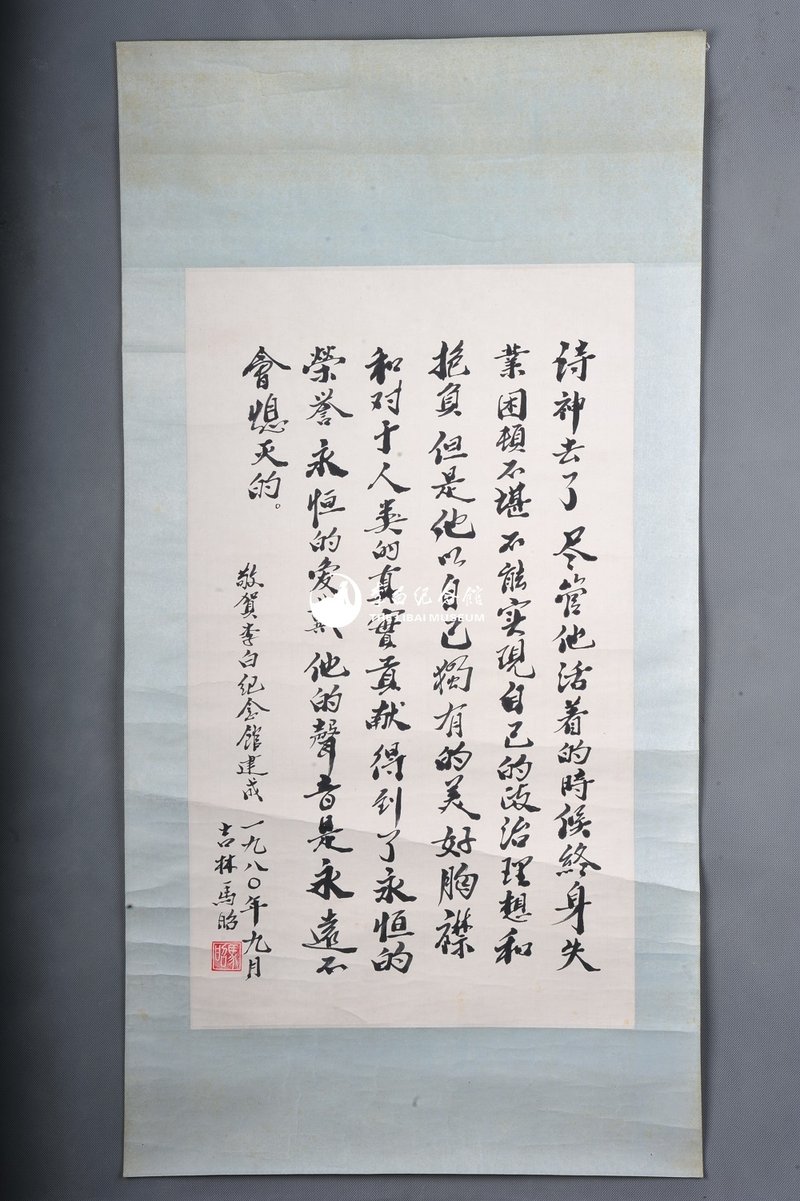 诗神去了尽管他活着的時候終身失
業困頓不堪不能实現自己的政治理想和
抱負但是他以自己獨有的美好胸襟
和对于人类的真實貢献得到了永恒的
榮誉永恒的愛戴他的聲音是永遠不
會熄灭的。
敬賀李白纪念馆建成
一九八〇年九月
吉林馬昭
馬昭
李白纪念館
THE LIBAI MUSEUM